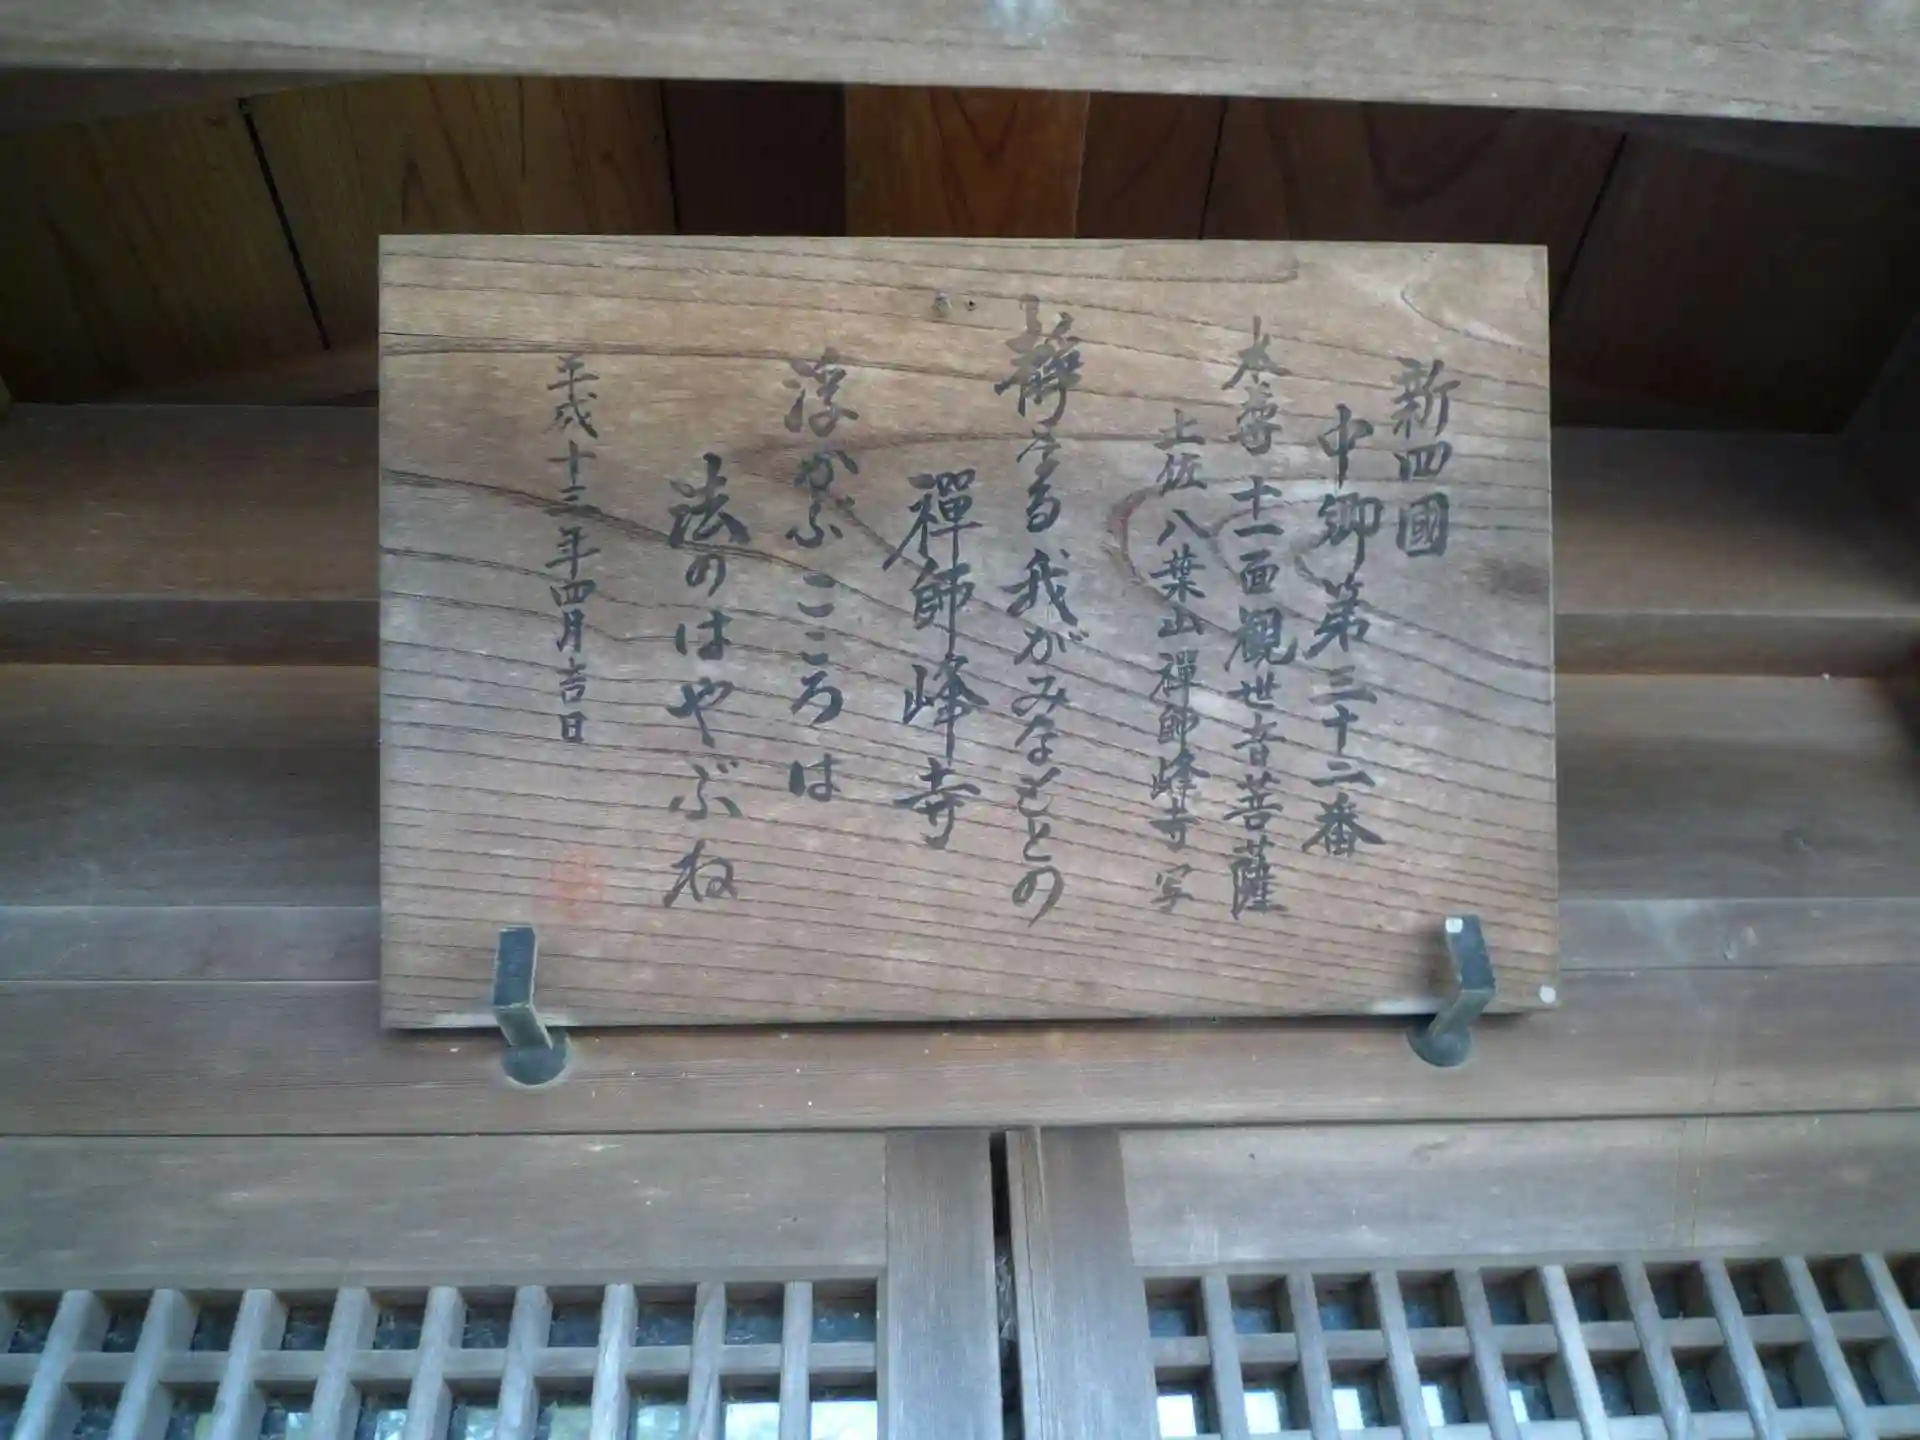 新四國
中郷第三十二番
本尊十一面観世音菩薩
土佐八葉山禪師峰寺写
静なる我がみなもとの
禪師峰寺
浮かぶこころは
法のはやぶね
平成十三年四月吉日